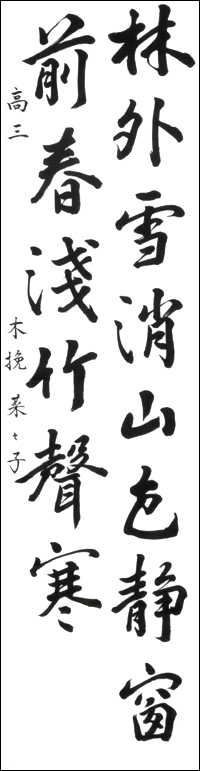 林外雪消山色静窗
前春淺竹聲寒
高三 木挽菜々子